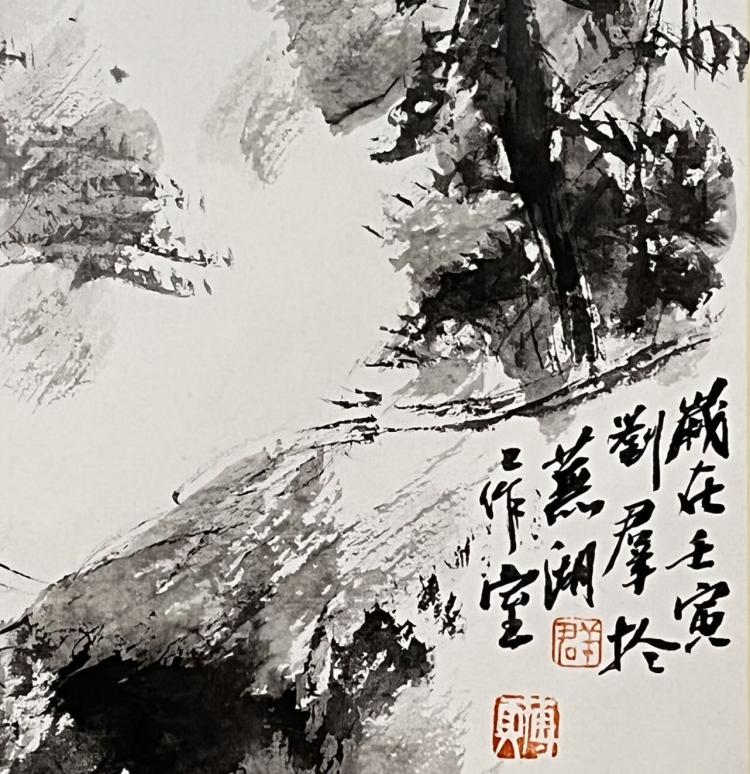 歲在壬寅
劉羣扵
蕪湖
工作室
群